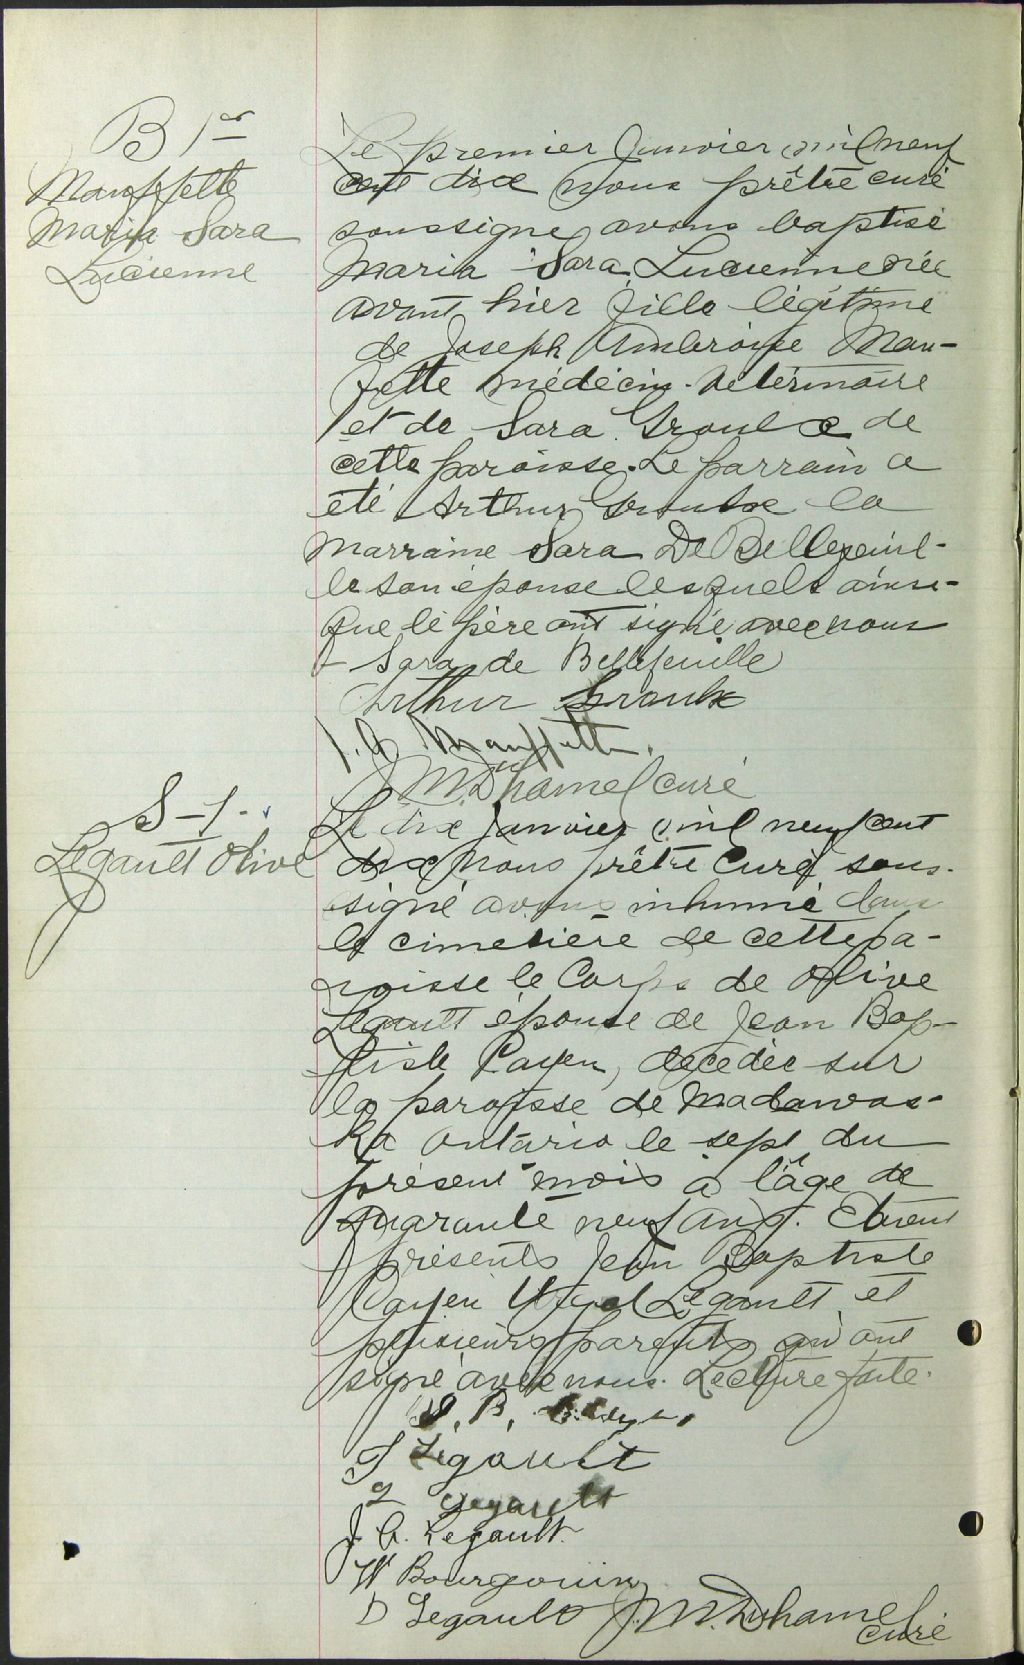 B 1er
Mauffette
Maria Sara
Lucienne
Le premier Janvier mil neuf
cent dix nous prêtre curé
soussigné avons baptisé
Maria Sara Lucienne née
avant hier fille légitime
de Joseph Ambroise Mau-
fette médecin-vétérinaire
et de Sara Groulx de
cette paroisse. Le parrain a
été Arthur Groulx la
marraine Sara De Bellefeuil-
le son épouse lesquels ainsi
que le père ont signé avec nous
Sara de Bellefeuille
Arthur Groulx
J. A. Mauffette.
J M. Duhamel curé
S-1-
Legault Olive
Le dix Janvier mil neuf cent
dix nous prêtre Curé sous-
signé avons inhumé dans
le cimetière de cette pa-
roisse le Corps de Olive
Legault épouse de Jean Bap-
tiste Cayen, décédée sur
la paroisse de Madawas-
ka Ontario le sept du
présent mois à l'âge de
quarante neuf ans. Etaient
présents Jean Baptiste
Cayen Legault et
plusieurs parents qui ont
signé avec nous. Lecture faite.
J. B.
Legault
Legault
J. A. Legault.
W Bourgouin
D Legault J. M. Duhamel
curé